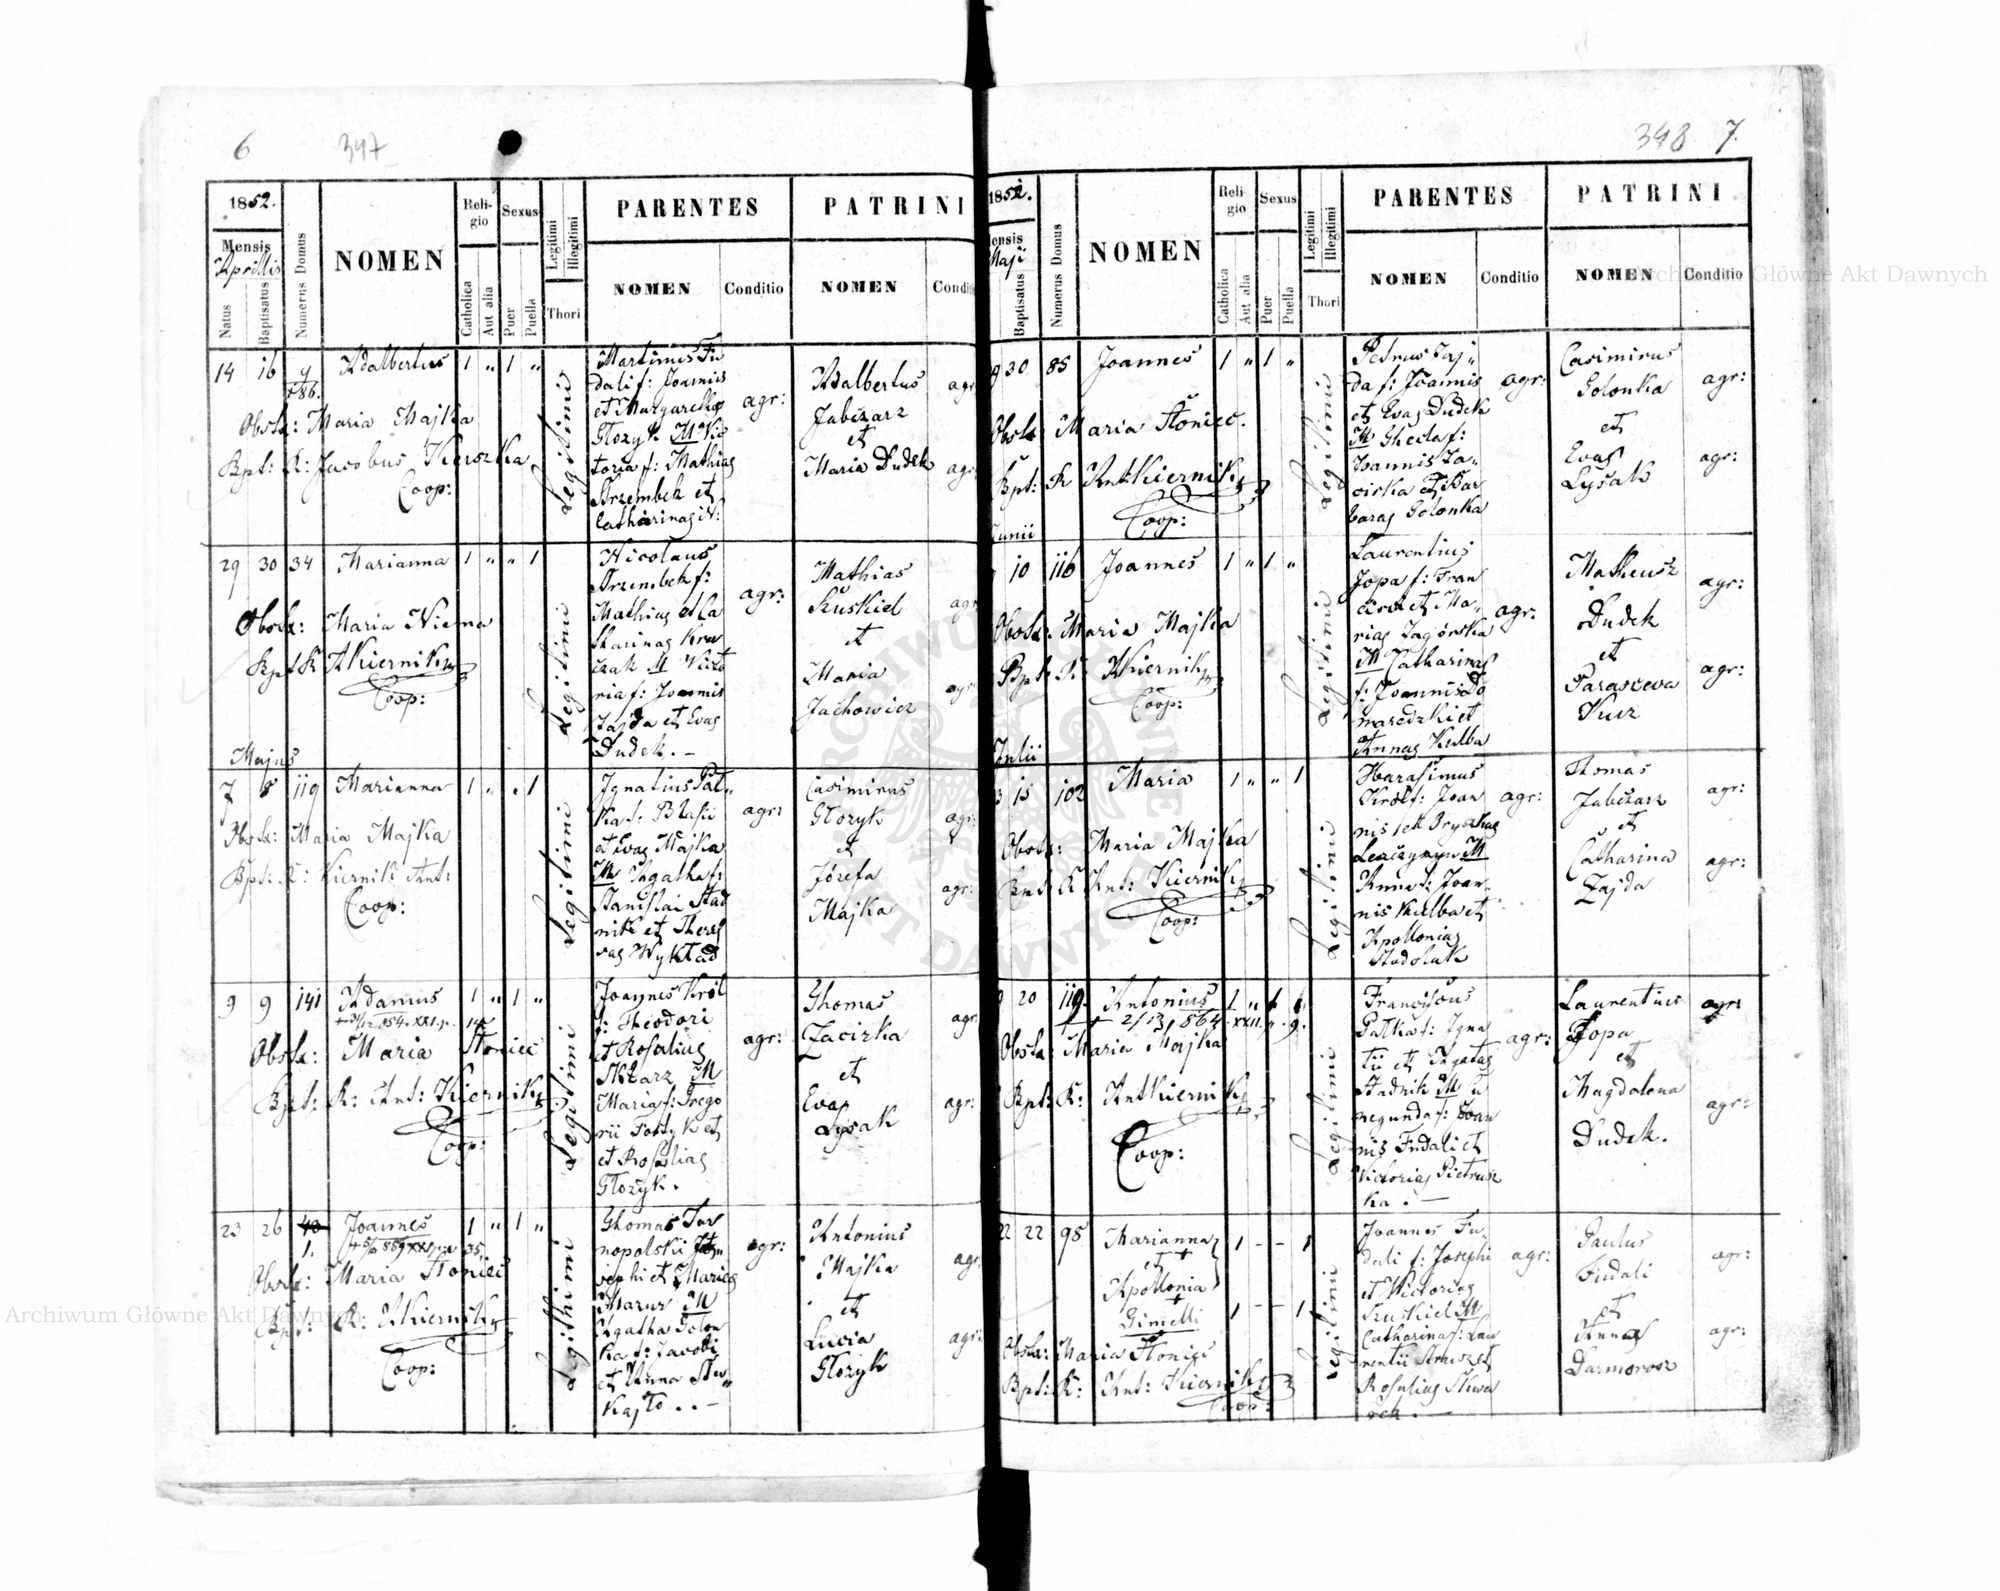 6 347
1852.
Mensis
Aprillis
Natus
Baptisatus
Numerus Domus
NOMEN
Religio
Catholica
Aut alia
Sexus
Puer
Puella
Legitimi
Illegitimi
Thori
PARENTES
NOMEN
Conditio
PATRINI
NOMEN
Conditi
14 16 Adalbertus 1 " 1 "
86.
Obstx: Maria Majka
Bpt: K: Jacobus
Coop:
Legitimi
Martinus Fu
dali f: Joannis
et Margarethae
Głozyk M Vic
toria f: Mathiae
Strzembek et
Catharinae N:
agr:
Adalbertus
Jabczarz
et
Maria Dudek
agr
agr
29 30 34 Marianna 1 " " 1
Obstx: Maria Niema
Bpt K AKiernik
Coop:
Legitimi
Nicolaus
Strzembek f:
Mathiae et Ca
tharinae Kra
czak M Victo
ria f: Joannis
Zajda et Evae
Dudek. -
agr:
Mathias
Szuskiel
et
Maria
Jachowicz
agr
agr
Majus
7 8 119 Marianna 1 " " 1
Obstx: Maria Majka
Bpt: K: Kiernik Ant:
Coop:
Legitimi
Ignatius Pat-
ka f: Blasii
et Evae Majka
M Agatha f:
Stanislai Stad
nik et There
sae Wykład
agr:
Casimirus
Głozyk
et
Józefa
Majka
agr:
agr:
9 9 141 Adamus 1 " 1 "
Obstx: Maria Słoniec
Bpt: K: Ant: Kiernik
Coop:
Legitimi
Joannes Król
f: Theodori
et Rosaliae
Sklarz M
Maria f: Grego
rii Fortyk et
et Rosaliae
Głozyk.
agr:
Thomas
Zacirka
et
Eva
Lysak
agr:
agr:
23 26 40 Joannes 1 " 1 "
1.
Obstx: Maria Słoniec
Bpt: K: AKiernik
Coop:
Legithimi
Thomas Tar
nopolski f: Jo
sephi et Mariae
Mazur M
Agatha Golon
ka f: Jacobi
et Anna Stu-
kajło . . -
agr:
Antonius
Majka
et
Lucia
Głozyk
agr:
agr:
348 7.
1852.
ensis
Maji
Baptisatus
Numerus Domus
NOMEN
Religio
Catholica
Aut alia
Sexus
Puer
Puella
Legitimi
Illegitimi
Thori
PARENTES
NOMEN
Conditio
PATRINI
NOMEN
Conditio
30 85 Joannes 1 " 1 "
Obstx Maria Słoniec.
Bpt: K AntKiernik
Coop:
Legitimi
Petrus Zaj-
da f: Joannis
et Evae Dudek
M Thecla f:
Joannis Za-
cirka et Bar
barae Golonka
agr:
Casimirus
Golonka
et
Evae
Lysak
agr:
agr:
Junii
10 116 Joannes 1 " 1 "
Obstx: Maria Majka
Bpt: K: AKiernik
Coop:
Legitimi
Laurentius
Jopa f: Fran
cisci et Ma-
riae Zagórska
M Catharina
f: Joannis Do
maradzki et
Annae Kulba
agr:
Matheusz
Dudek
et
Parasceva
Kusz
agr:
agr:
Julii
15 102 Maria 1 " " 1
Obstx: Maria Majka
Bpt: K Ant: Kiernik
Coop:
Legitimi
Harasimus
Król f: Joan
nis et Pryskae
M
Anna f: Joan-
nis Kulba et
Apolloniae
Stodolak
agr:
Thomas
Jabczarz
et
Catharina
Zajda
agr:
agr:
20 119. Antonius 1 "
Obstx: Maria Majka
Bpt: K: AntKiernik
Coop:
Legitimi
Franciscus
Patka f: Igna
tii et Agatae
Stadnik M Cu
negunda f: Joan
nis Fudali et
Victoriae Pietrusz
ka . -
agr:
Laurentius
Jopa
et
Magdalena
Dudek.
agr:
agr:
22 22 98 Marianna 1 - - 1
et +
Apollonia
+
Gimelli 1 - - 1
Obstx: Maria Słoniec
Bpt: K: Ant: Kiernik
Coop:
Legitimi
Joannes Fu-
dali f: Josephi
et Victoriae
Szuskiel M
Catharina f: Lau
rentii Strusz et
Rosaliae Skwa
rek. -
agr:
Paulus
Fudali
et
Anna
Darmorosz
agr:
agr:
Archiwum Główne Akt Dawnych
Archiwum Główne Akt Dawnych
ARCHIWUM GŁÓWNE AKT DAWNYCH